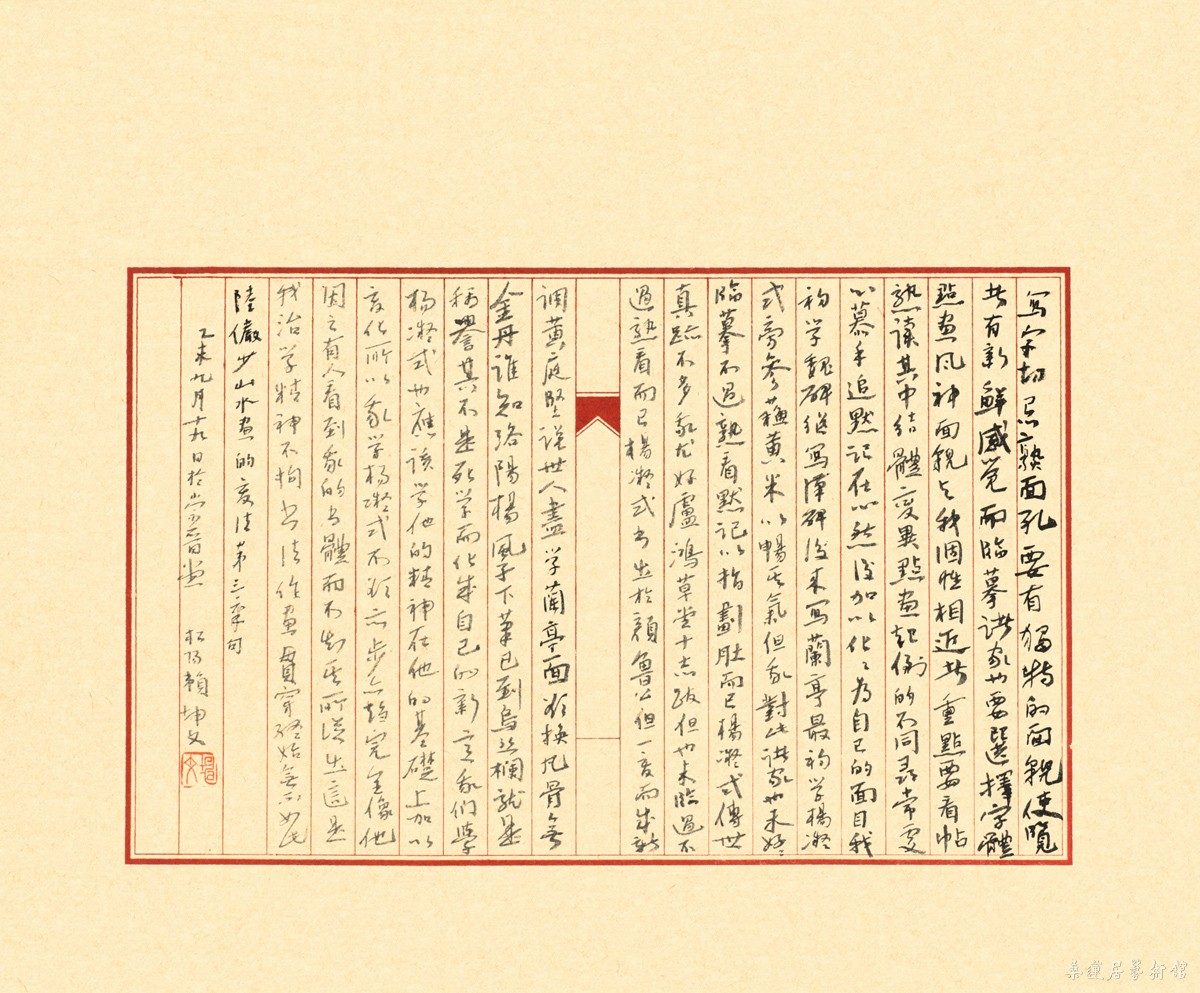 寫字切忌熟面孔要有獨特的面貌使覽
者有新鮮感覺而臨摹諸家也要選擇字體
點畫風神面貌与我個性相近者重點要看帖
熟讀其中結體变異點画起倒的不同尋常處
心慕手追默記在心然後加以化々為自己的面目我
初學魏碑继寫漢碑後来寫蘭亭最初學楊凝
式旁参蘇黄米以暢其氣但我對此諸家也未好々
臨摹不過熟看默記以指劃肚而已楊凝式傳世
真跡不多我尤好盧鴻草堂十志跋但也未臨過不
過熟看而已楊凝式书出於顏魯公但一变而成新
調黄庭堅說世人盡学蘭亭面欲换凡骨無
金丹誰知洛陽楊風子下筆已到烏絲欄就是
稱譽其不是死学而化成自己的新意我们學
楊凝式也應該学他的精神在他的基礎上加以
变化所以我学楊凝式不欲亦步亦趋完全像他
因之有人看到我的书體而不知其所從出這是
我治学精神不拘书法作画貫穿終始無不如此
陸儼少山水画的变法第三章句
乙未九月十九日於
松阳賴坤文
桑蓮居藝術館